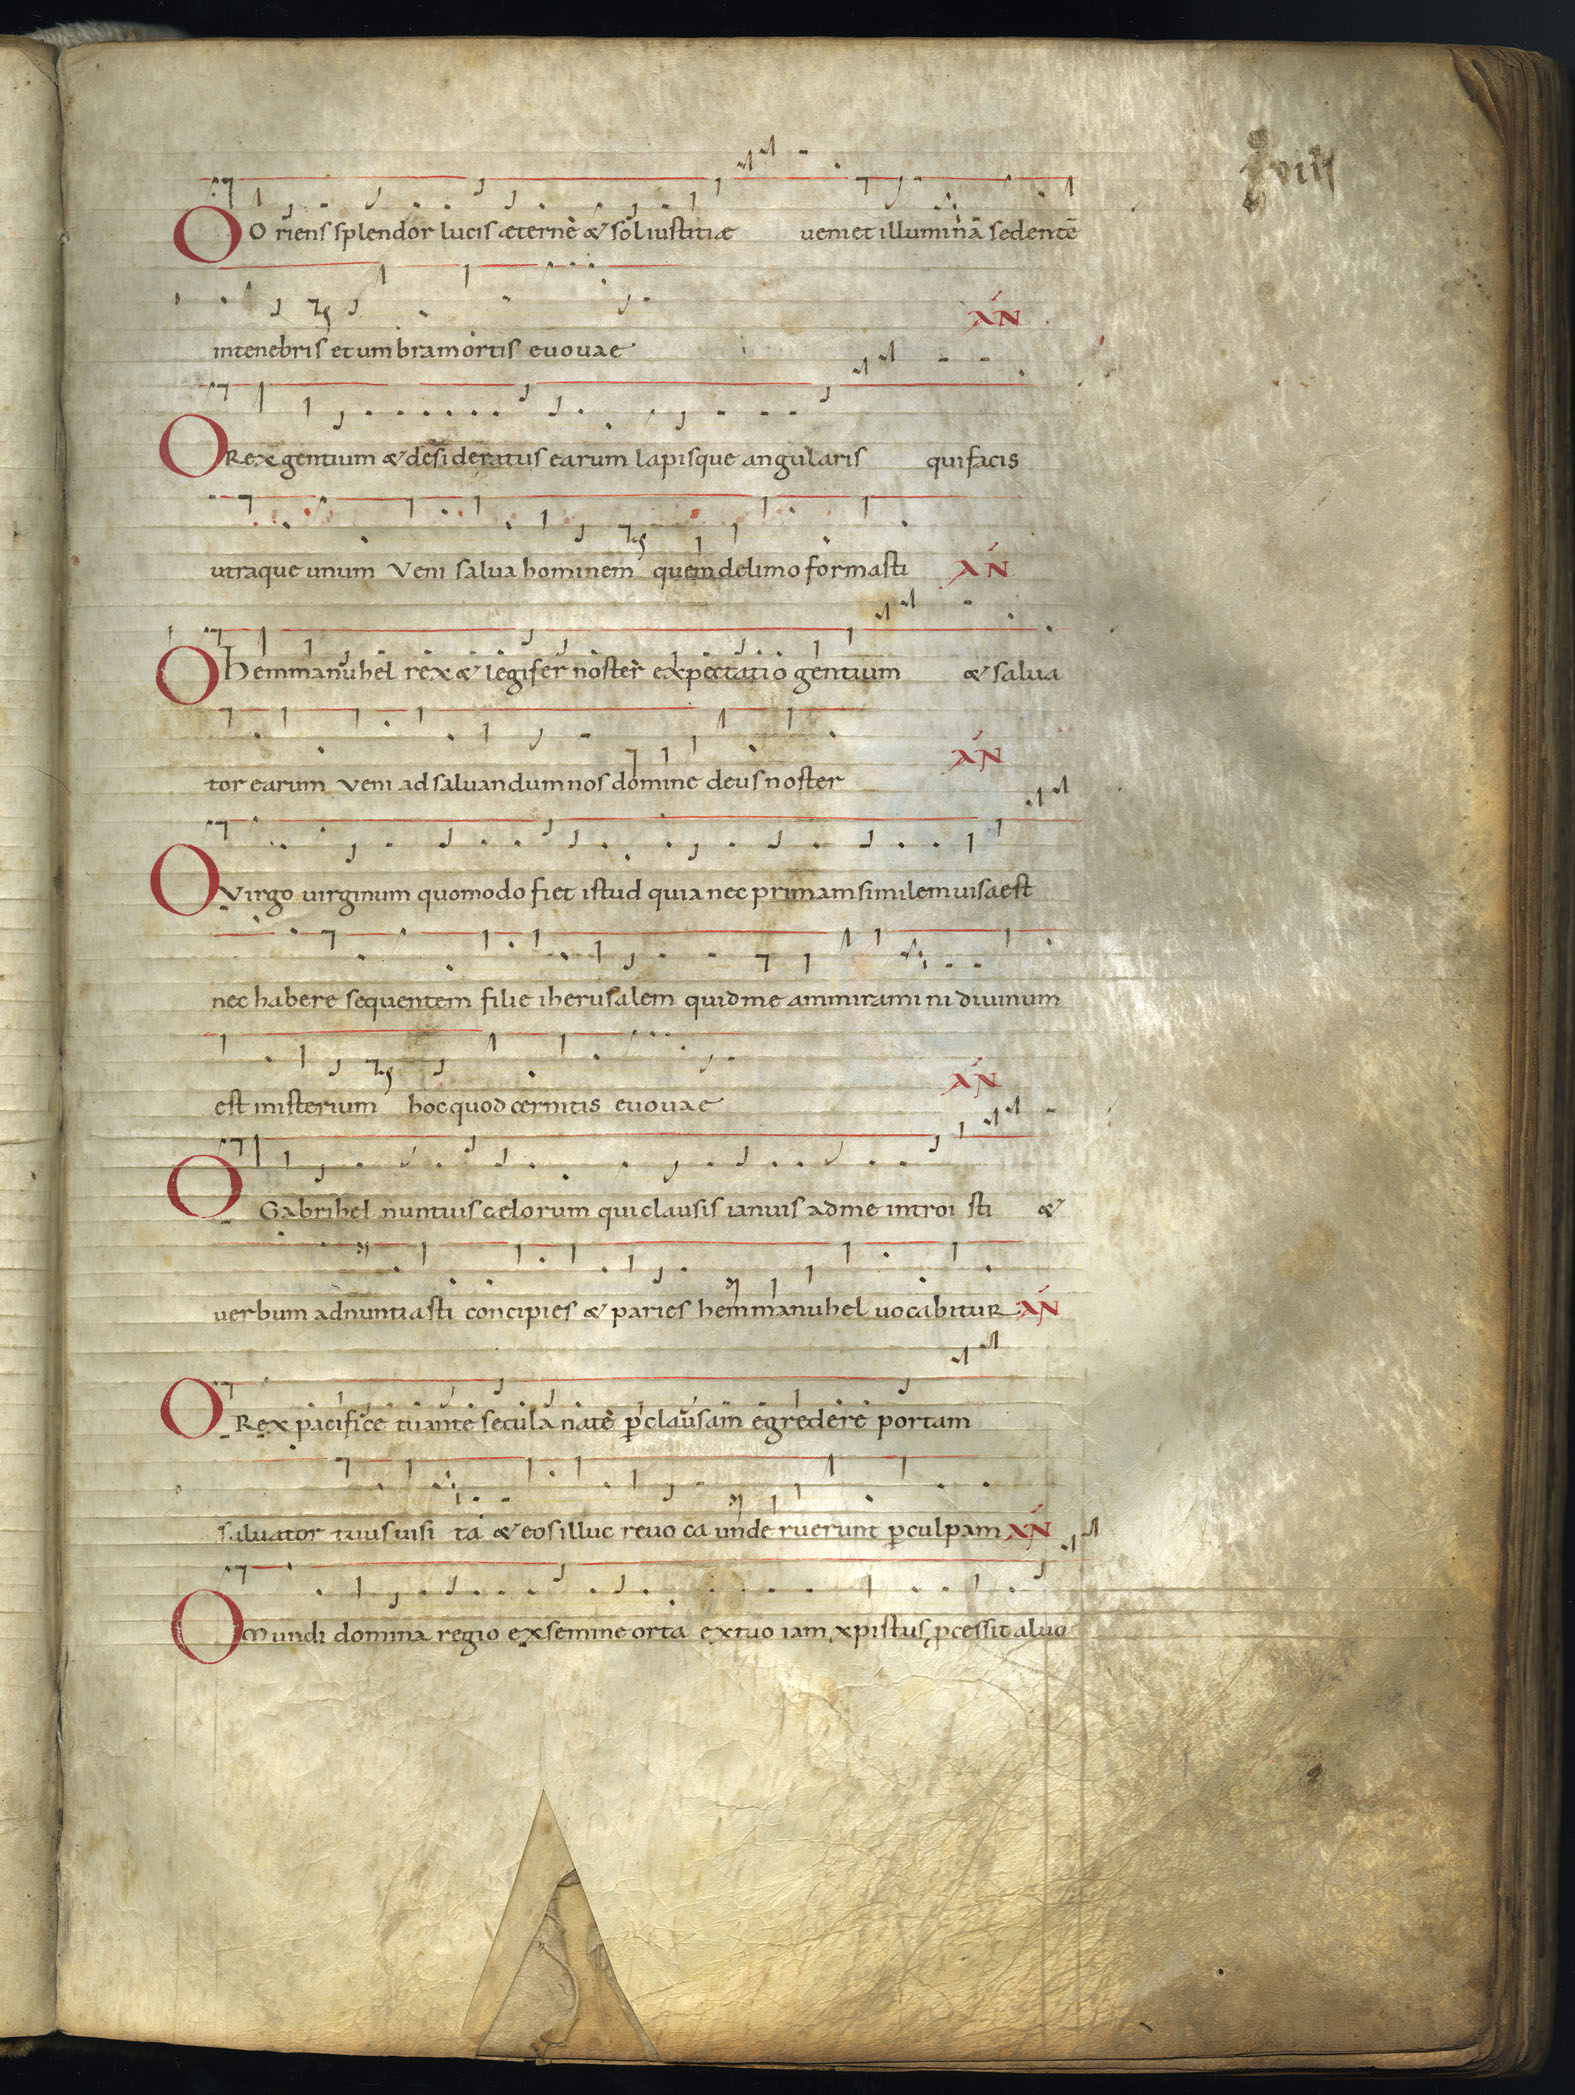 viii
O Oriens splendor lucis æterne & sol iustitiæ veni et illuminā sedentē
in tenebris et umbra mortis euouae AN
O Rex gentium & desideratus earum lapisque angularis qui facis
utraque unum veni salua hominem quem de limo formasti AN
O hemmanuhel rex & legifer noster expectatio gentium & salua
tor earum veni ad saluandum nos domine deus noster AN
O Virgo virginum quomodo fiet istud quia nec primam similem uisa est
nec habere sequentem filie iherusalem quid me ammiramini diuinum
est misterium hoc quod cernitis euouae AN
O Gabrihel nuntius celorum qui clausis ianuis ad me introisti &
uerbum adnuntiasti concipies & paries hemmanuhel uocabitur AN
O Rex pacifice tu ante secula nate p clausam egredere portam
saluator tuus uisita & eos illuc reuoca unde ruerunt p culpam AN
O mundi domina regio ex semine orta ex tuo iam xpistus pcessit aluo